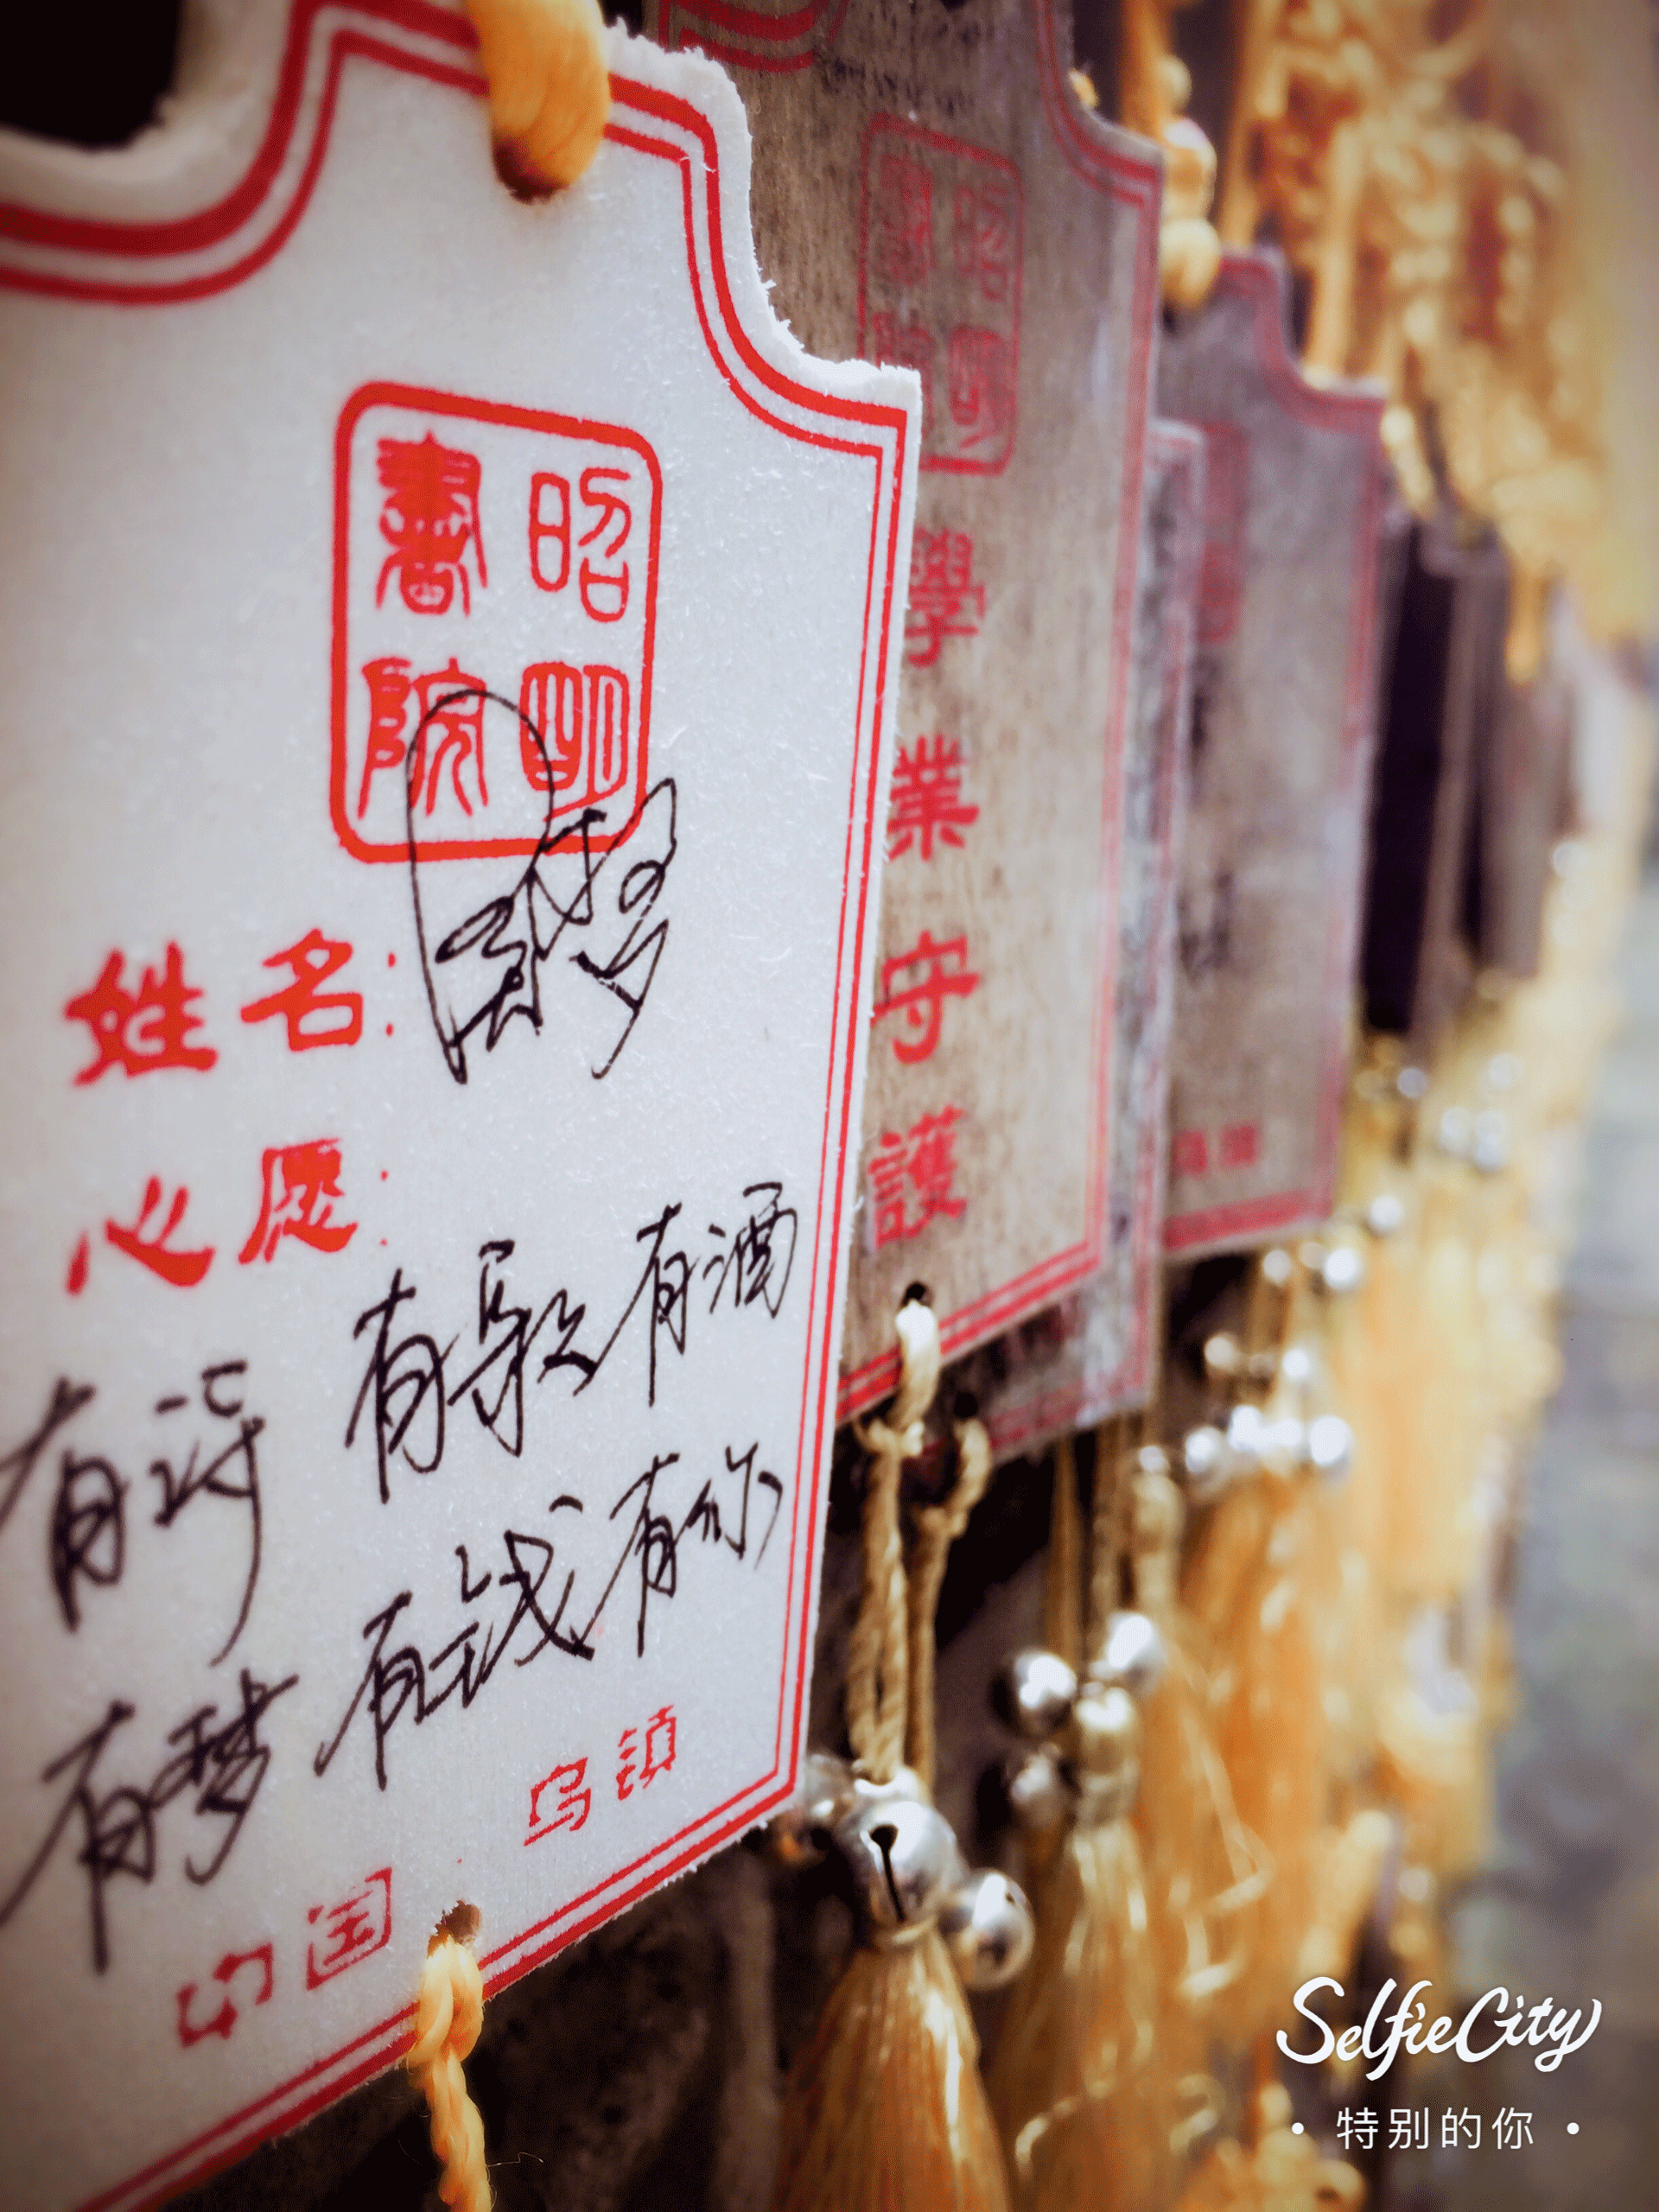 昭明
書院
姓名:
心愿:
有歌有酒
有诗
有钱有你
有梦
中国·乌镇
學業守護
SelfieCity
· 特别的你 ·